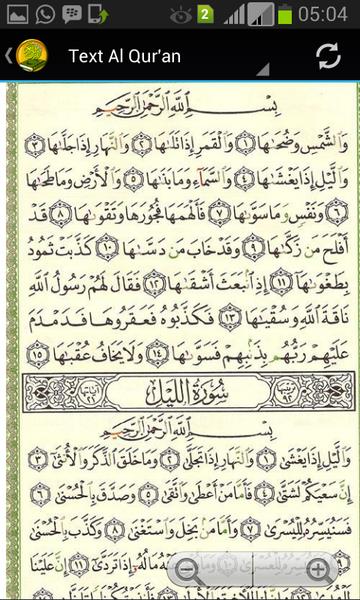 05:04
Text Al Qur'an
بِسْمِ اللَّهِ الرَّحْمَٰنِ الرَّحِيمِ
وَالشَّمْسِ وَضُحَاهَا ١ وَالْقَمَرِ إِذَا تَلَاهَا ٢ وَالنَّهَارِ إِذَا جَلَّاهَا ٣
وَاللَّيْلِ إِذَا يَغْشَاهَا ٤ وَالسَّمَاءِ وَمَا بَنَاهَا ٥ وَالْأَرْضِ وَمَا طَحَاهَا
٦ وَنَفْسٍ وَمَا سَوَّاهَا ٧ فَأَلْهَمَهَا فُجُورَهَا وَتَقْوَاهَا ٨ قَدْ
أَفْلَحَ مَنْ زَكَّاهَا ٩ وَقَدْ خَابَ مَنْ دَسَّاهَا ١٠ كَذَّبَتْ ثَمُودُ
بِطَغْوَاهَا ١١ إِذِ انْبَعَثَ أَشْقَاهَا ١٢ فَقَالَ لَهُمْ رَسُولُ اللَّهِ
نَاقَةَ اللَّهِ وَسُقْيَاهَا ١٣ فَكَذَّبُوهُ فَعَقَرُوهَا فَدَمْدَمَ
عَلَيْهِمْ رَبُّهُمْ بِذَنْبِهِمْ فَسَوَّاهَا ١٤ وَلَا يَخَافُ عُقْبَاهَا ١٥
سُورَةُ اللَّيْلِ
بِسْمِ اللَّهِ الرَّحْمَٰنِ الرَّحِيمِ
وَاللَّيْلِ إِذَا يَغْشَىٰ ١ وَالنَّهَارِ إِذَا تَجَلَّىٰ ٢ وَمَا خَلَقَ الذَّكَرَ وَالْأُنْثَىٰ ٣
إِنَّ سَعْيَكُمْ لَشَتَّىٰ ٤ فَأَمَّا مَنْ أَعْطَىٰ وَاتَّقَىٰ ٥ وَصَدَّقَ بِالْحُسْنَىٰ ٦
فَسَنُيَسِّرُهُ لِلْيُسْرَىٰ ٧ وَأَمَّا مَنْ بَخِلَ وَاسْتَغْنَىٰ ٨ وَكَذَّبَ بِالْحُسْنَىٰ
٩ فَسَنُيَسِّرُهُ لِلْعُسْرَىٰ ١٠ وَمَا يُغْنِي عَنْهُ مَالُهُ إِذَا تَرَدَّىٰ ١١ إِنَّ عَلَيْنَا